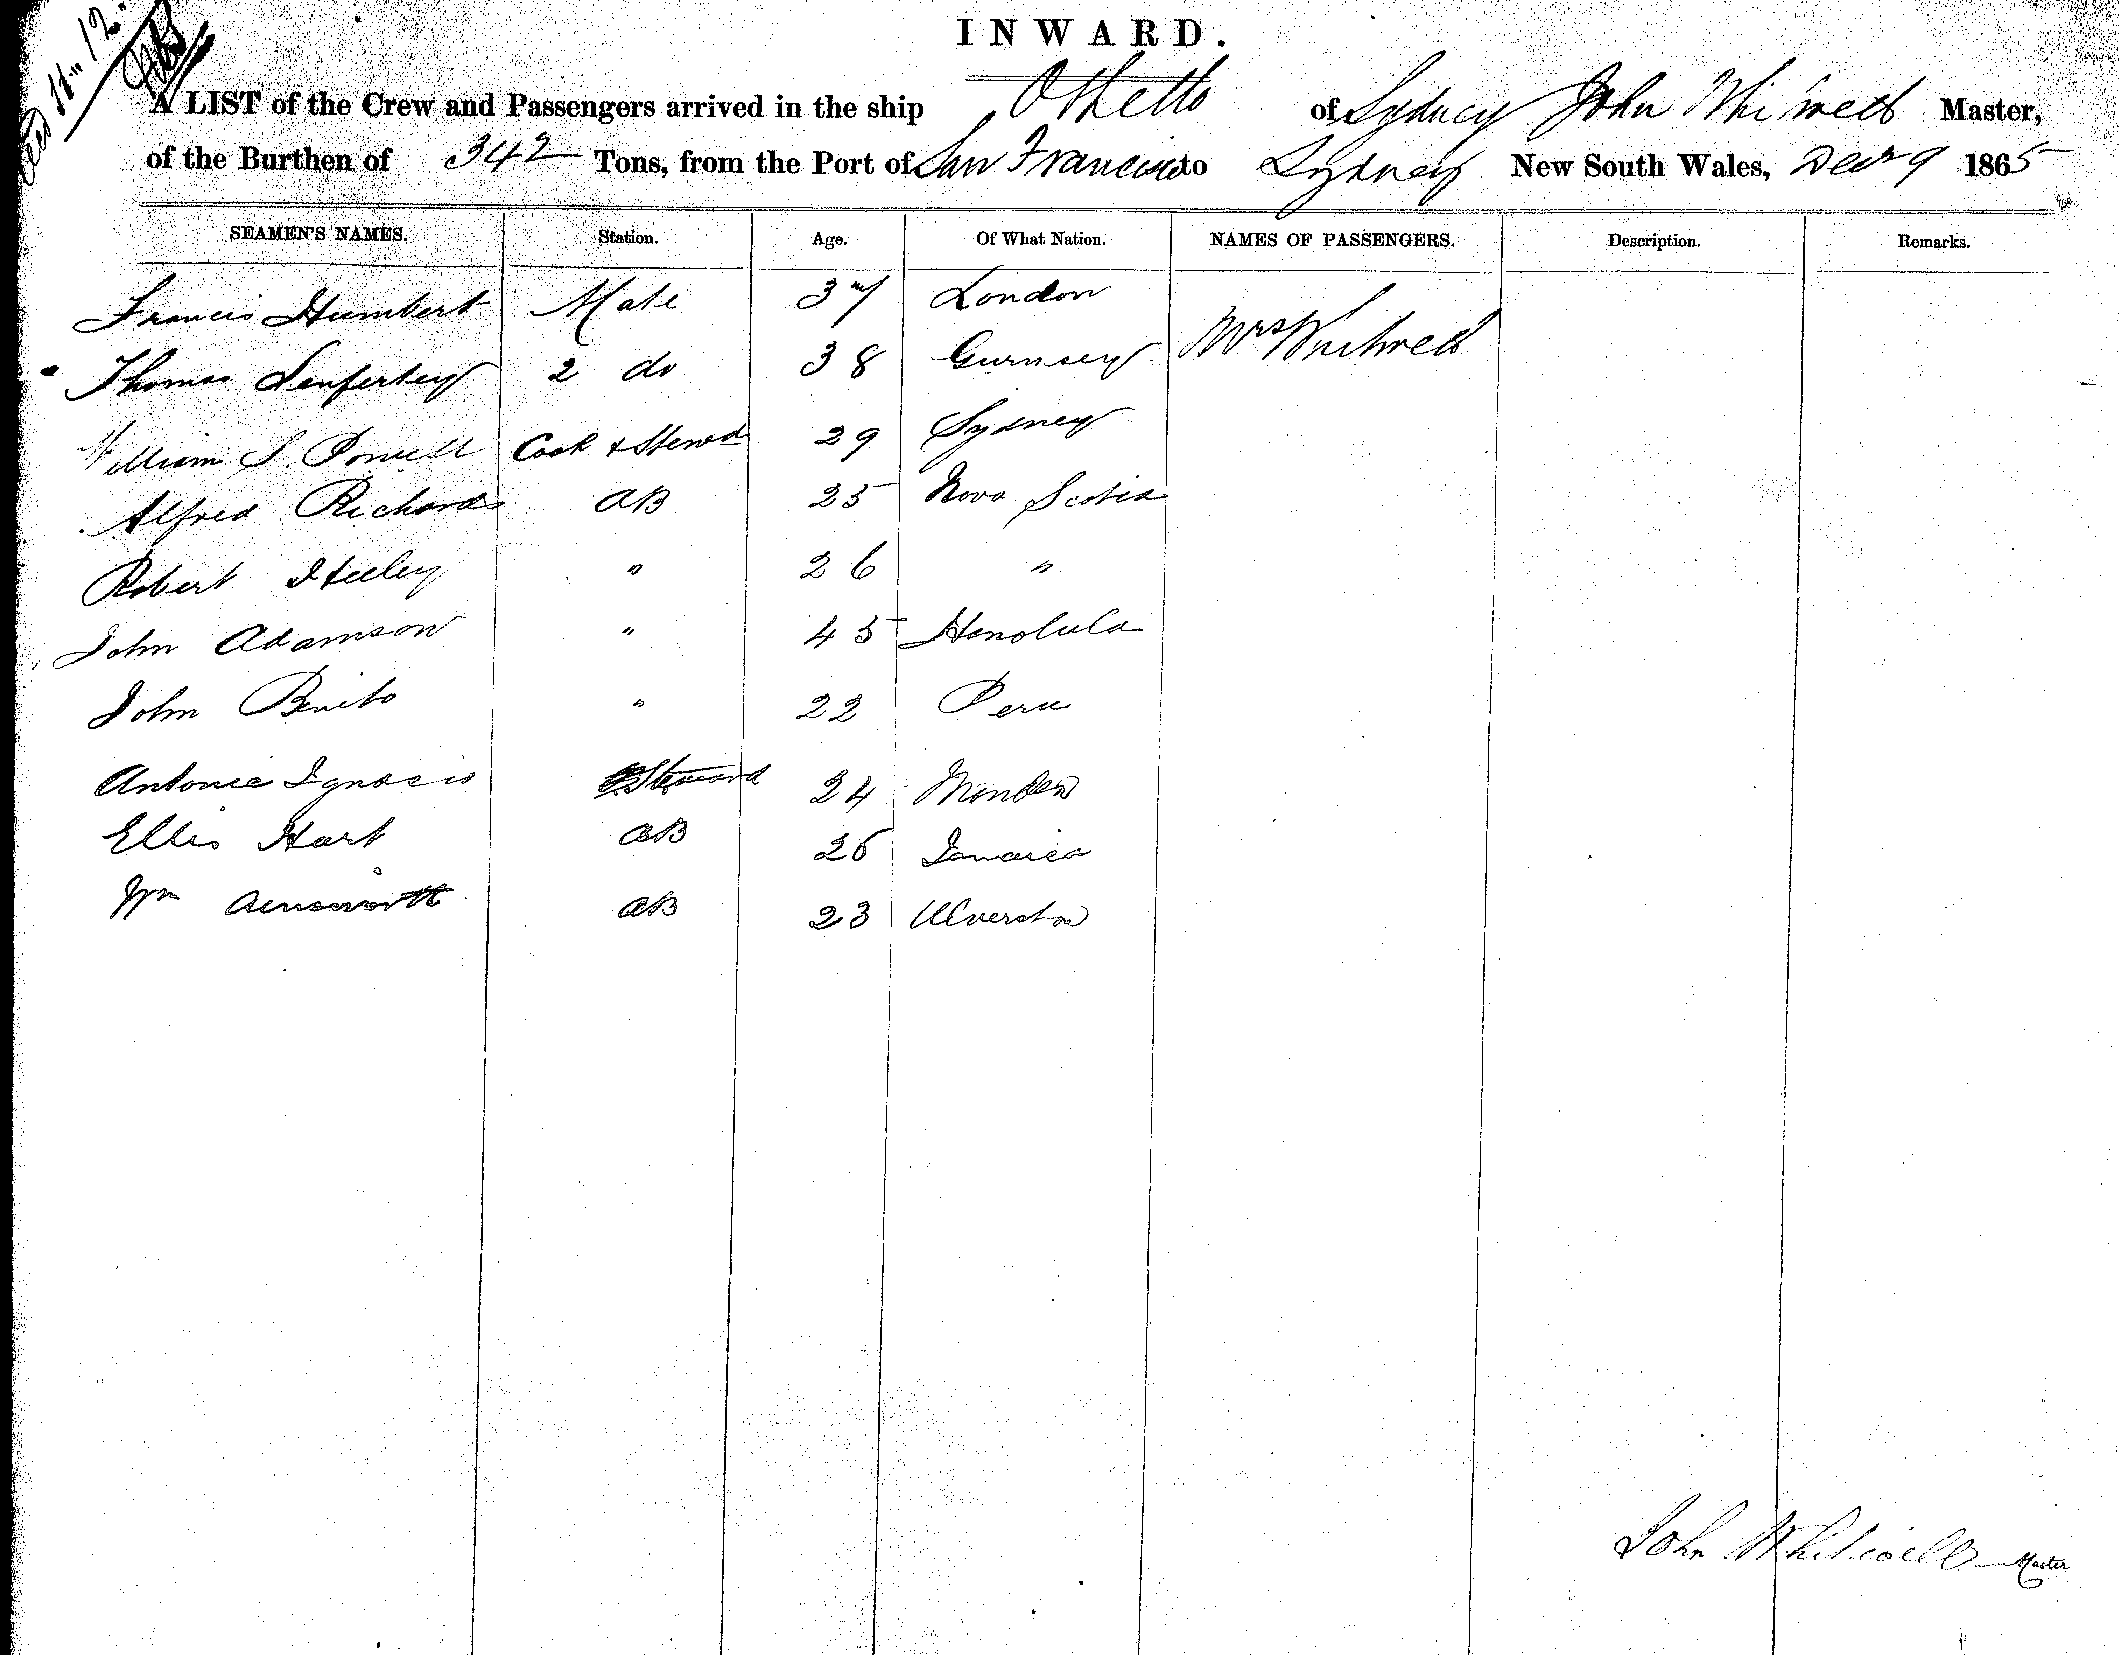 INWARD.
A LIST of the Crew and Passengers arrived in the ship Othello of Sydney John Whitwell Master,
of the Burthen of 342 Tons, from the Port of San Francisco to Sydney New South Wales, Decr 9 1865
SEAMEN'S NAMES. Station. Age. Of What Nation. NAMES OF PASSENGERS. Description. Remarks.
Francis Humbert Mate 37 London
Mrs Whitwell
Thomas 2 do 38 Gurnsey
William S. Powell Cook & Stewd 29 Sydney
Alfred Richards AB 25 Nova Scotia
Robert Steeley " 26 "
John Adamson " 45 Honolula
John Brito " 22 Peru
Antonie Ignacio Steward 24
Ellis Hart AB 26 Jamaica
Wm Ainsworth AB 23 Ulverston
John Whitwell Master